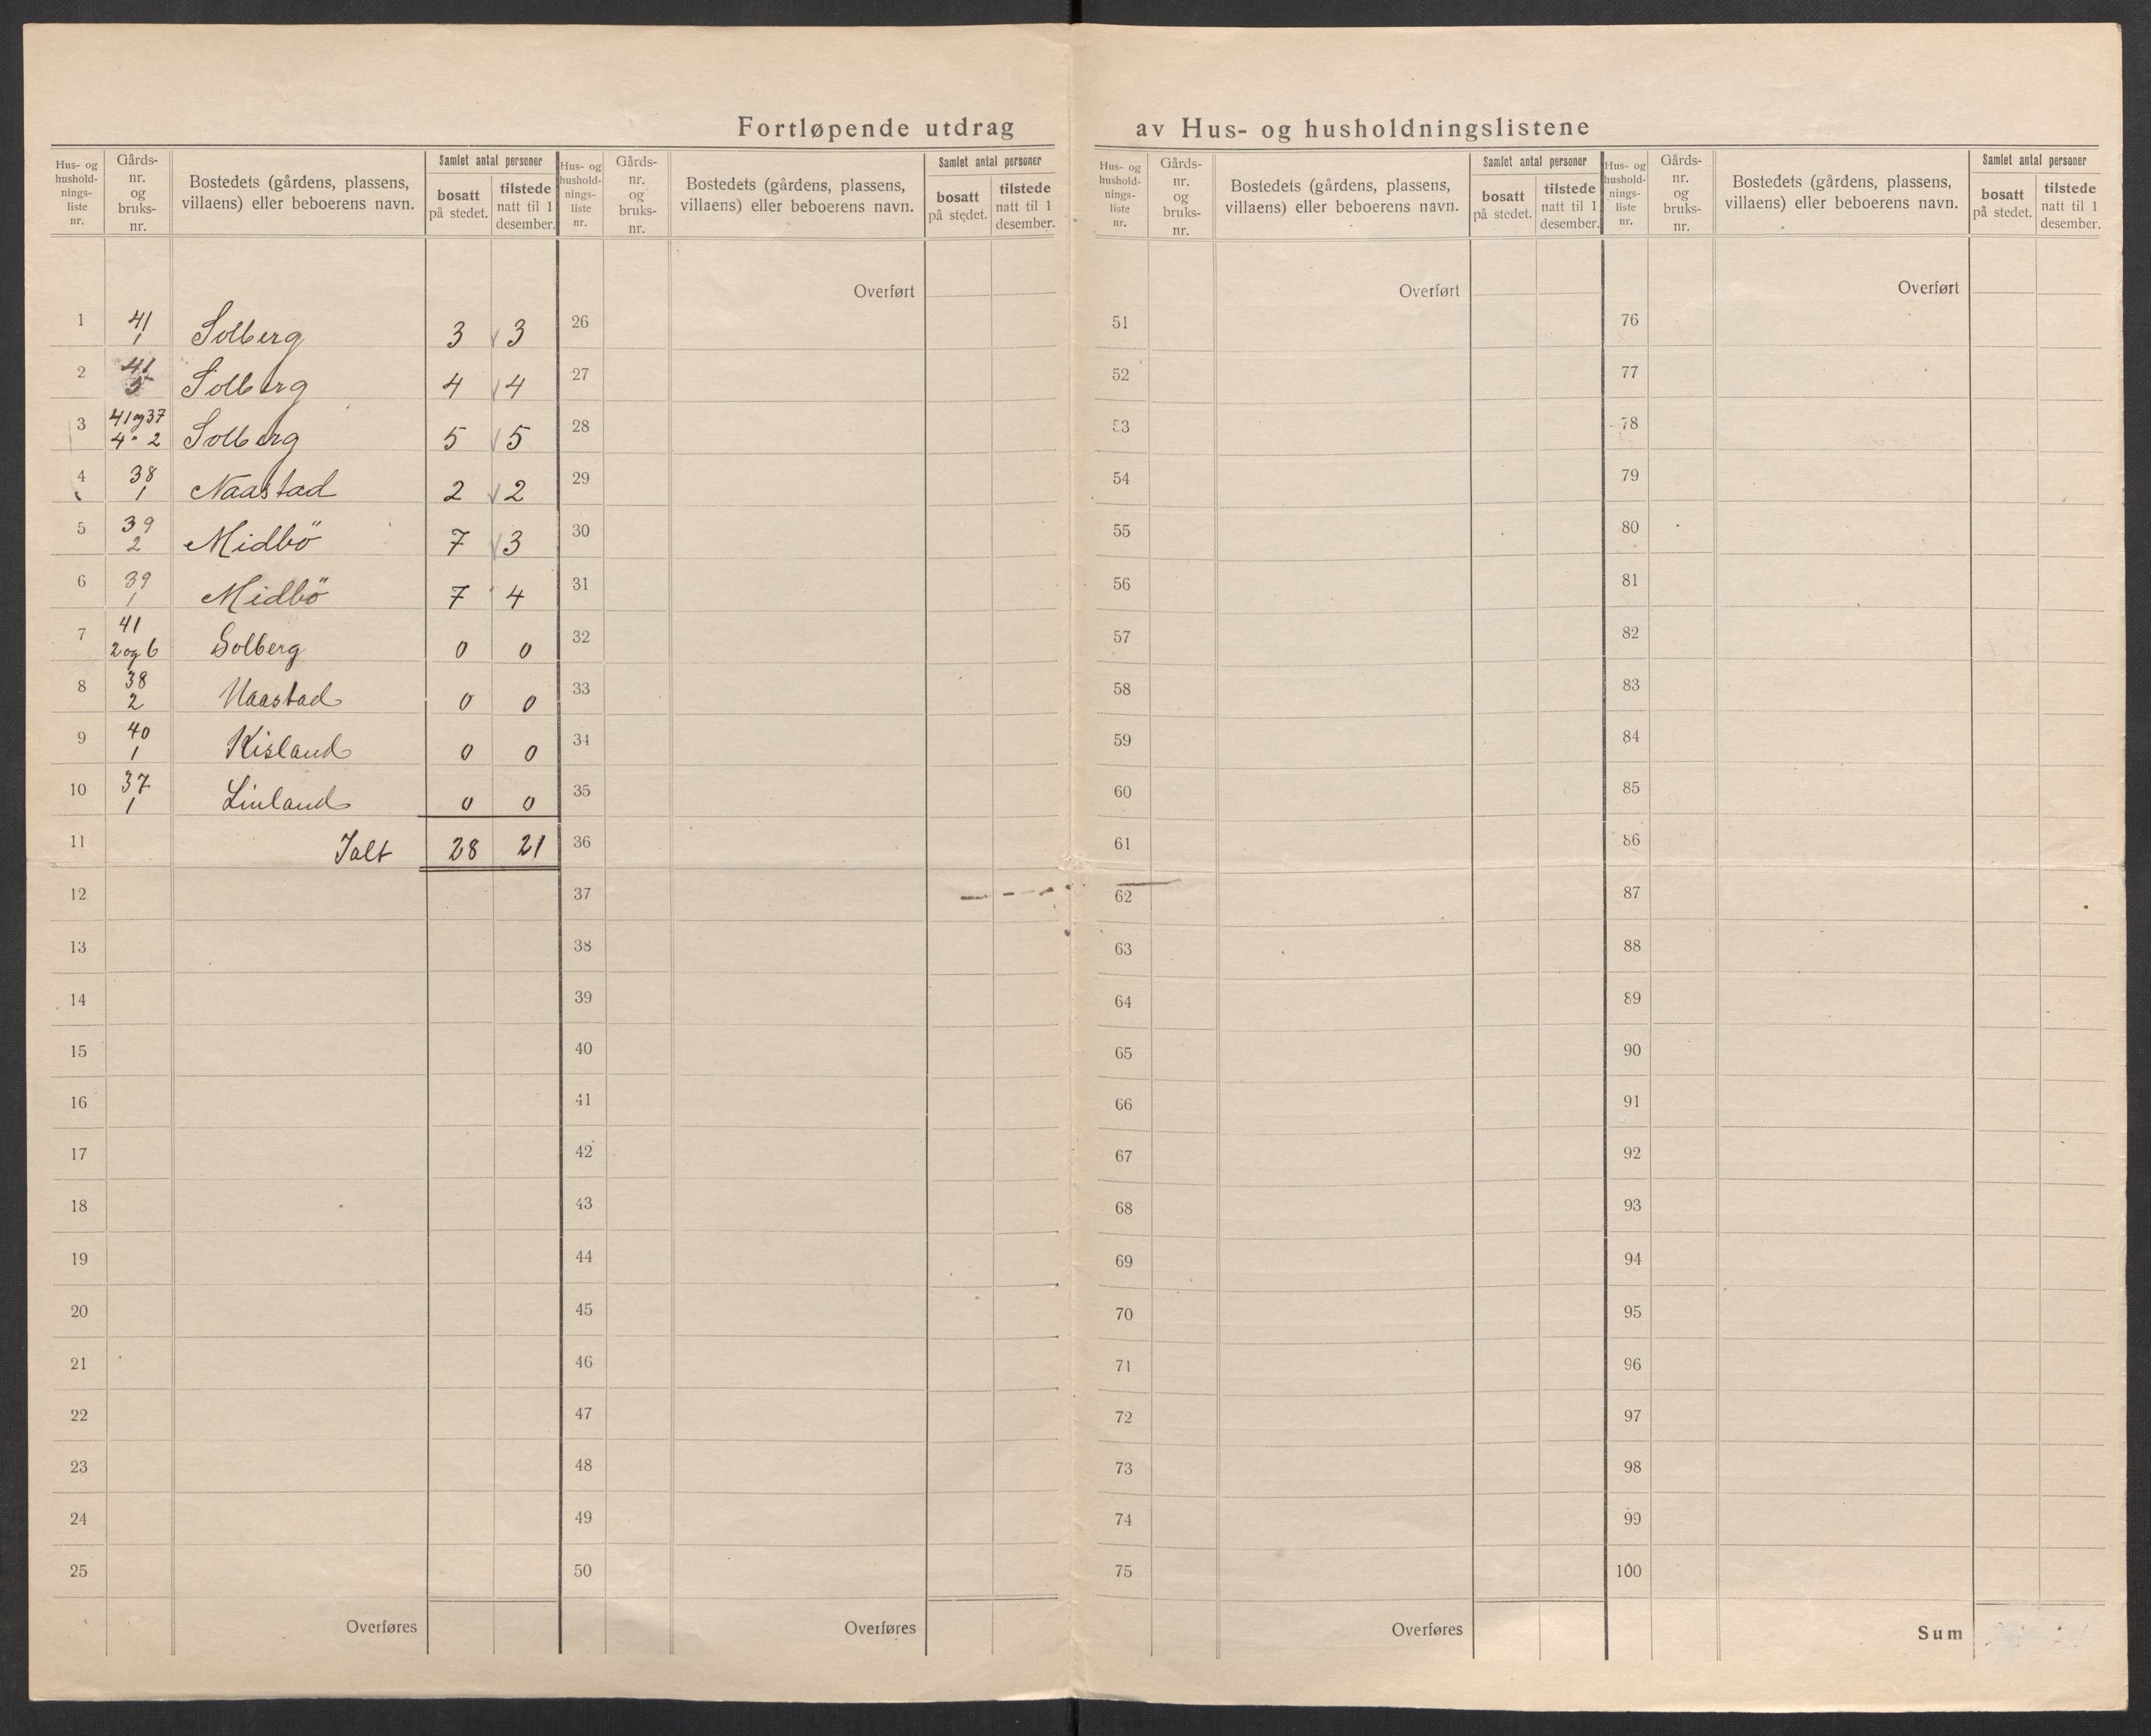 Fortløpende utdrag av Hus- og husholdningslistene
Hus- og hushold-nings-liste nr. Gårds-nr. og bruks-nr. Bostedets (gårdens, plassens, villaens) eller beboerens navn. Samlet antal personer bosatt på stedet. tilstede natt til 1 desember.
1 41/1 Solberg 3 3
2 41/5 Solberg 4 4
3 41 og 37 4 " 2 Solberg 5 5
4 38/1 Naastad 2 2
5 39/2 Midbö 7 3
6 39/1 Midbö 7 4
7 41 2 og 6 Solberg 0 0
8 38/2 Naastad 0 0
9 40/1 Kisland 0 0
10 37/1 Linland 0 0
11 Ialt 28 21
12
13
14
15
16
17
18
19
20
21
22
23
24
25
Overføres
Hus- og hushold-nings-liste nr. Gårds-nr. og bruks-nr. Bostedets (gårdens, plassens, villaens) eller beboerens navn. Samlet antal personer bosatt på stedet. tilstede natt til 1 desember.
Overført
26
27
28
29
30
31
32
33
34
35
36
37
38
39
40
41
42
43
44
45
46
47
48
49
50
Overføres
Hus- og hushold-nings-liste nr. Gårds-nr. og bruks-nr. Bostedets (gårdens, plassens, villaens) eller beboerens navn. Samlet antal personer bosatt på stedet. tilstede natt til 1 desember.
Overført
51
52
53
54
55
56
57
58
59
60
61
62
63
64
65
66
67
68
69
70
71
72
73
74
75
Overføres
Hus- og hushold-nings-liste nr. Gårds-nr. og bruks-nr. Bostedets (gårdens, plassens, villaens) eller beboerens navn. Samlet antal personer bosatt på stedet. tilstede natt til 1 desember.
Overført
76
77
78
79
80
81
82
83
84
85
86
87
88
89
90
91
92
93
94
95
96
97
98
99
100
Sum